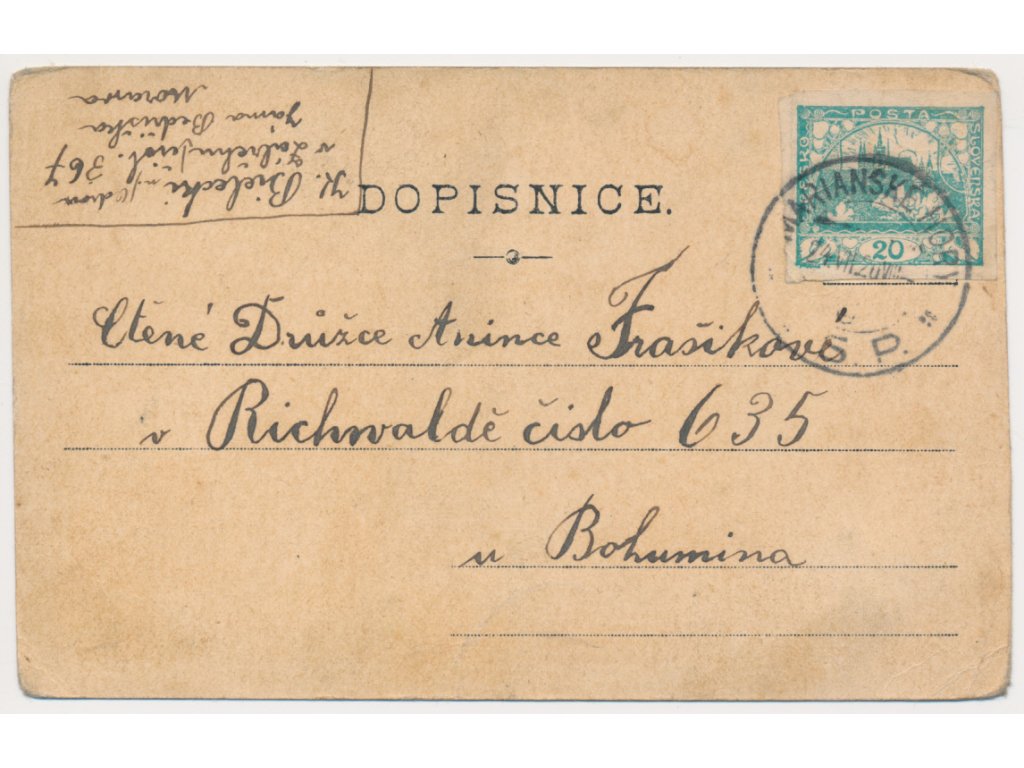 K. Bielecki
v Zábřehu 367
Jáma Bedřiška
Morava
DOPISNICE.
POŠTA
ČESKO SLOVENSKÁ
20
MARIANSKÉ HORY
Č.S.P.
Ctěné Družce Anince Frašikové
v Richwaldě číslo 635
u Bohumina